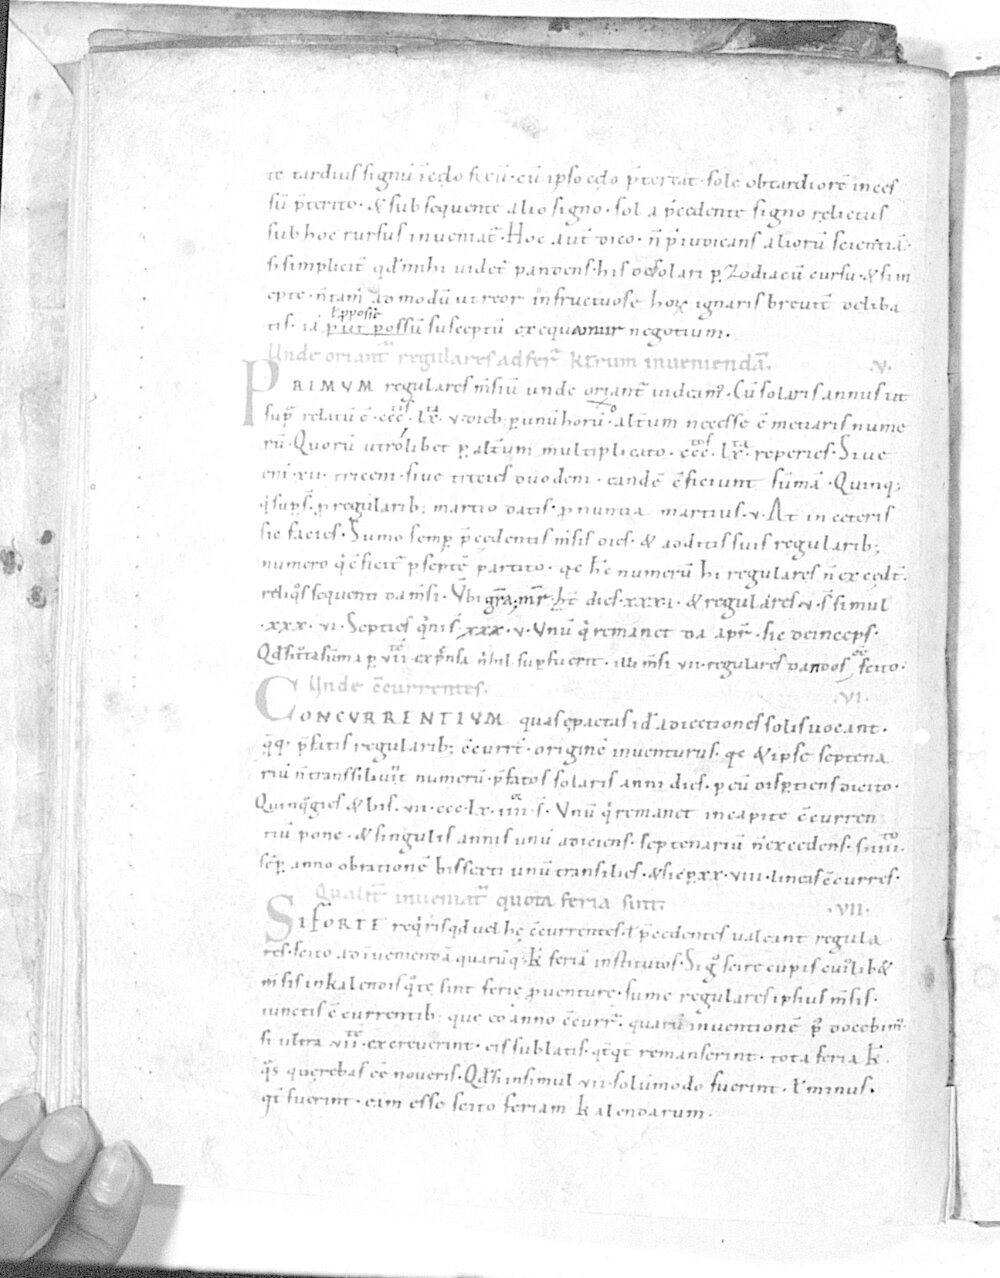 te tardius signū ī celo fixū · cū ipso celo p̄tereat · sole ob tardiorē inces
sū p̄terito · & subsequente alio signo · sol a p̄cedente signo relictus
sub hoc rursus inveniat᷒ · Hoc aut̄ dico · n̄ p̄iudicans aliorū scientiā ·
si simpliciť qd̄ mihi videť pandens · his de solari ꝑ zodiacū cursu · & sim
cepte · n̄ tam̄ admodū ut reor infructuose hoꝝ ignaris breviť deliba
tis · iā prout possū susceptū exequamur negotium ·
Unde orianť regulares ad feř kłrum inveniendā · V ·
PRIMUM regulares m̄siū unde orianť videam᷒ · Cū solaris annus ut
sup̄ relatū ē · ccc · lx · v · dieb; ꝑ unū horū · alťum necesse ē metiaris nume
rū · Quorū utrōlibet ꝑ alťum multiplicato · ccc · lx · reperies · Sive
eni · xii · triceni · sive tricies duodeni · eandē efficiunt sūmā · Quinq;
q̇ supš · ꝓ regularib; martio datis · ꝓnuncia martius · v · At in ceteris
sic facies · Sumo semꝑ p̄cedentis m̄sis dies · & additis suis regularib;
numero q̇ efficiť ꝑ septē partito · qe hē numerū hi regulares n̄ excedť ·
reliq̊s sequenti da m̄si · Ubi grā · mř · ht̄ dies · xxxi · & regulares · v · s̄ simul
· xxx · vi · Septies q̇nis xxx · v · Unū q̇ remanet da apř · sic deinceps ·
Qd̄ si tota sūma ꝑ vii · exp̄nsa nihil supfuerit · illi m̄si vii · regulares dandos scito ·
Unde c̄currentes · VI ·
CONCURRENTIUM quas epactas id̄ adiectiones solis vocant ·
q̇q; p̄fatis regularib; c̄curř · originē inventurus · qe & ipse septena
riū n̄ transsiliunt numerū · p̄fatos solaris anni dies · ꝑ eū dispertiens dicito ·
Quinq̇gies & bis · vii · ccc · lx · iiii · s̄ · Unū q̇ remanet in capite c̄curren
tiū pone · & singulis annis unū adiciens · septenariū n̄ excedens · s; iiii ·
semꝑ anno ob rationē bissexti unū transilies · & sic ꝑ xx · viii · lineas c̄curres ·
Qualiť inveniať quota feria sint · VII ·
SI FORTE req̇ris qd vel hę c̄currentes · ł p̄cedentes valeant regula
res · scito ad inveniendā quarūq; k feriā institutos · Si g̊ scire cupis cui᷒lib&
m̄sis in kalendis q̊tę sint ferię proventurę · sume regulares ipsius m̄sis ·
iunctis c̄currentib; que eo anno c̄curř · quarū inventionē p̄docebim᷒ ·
si ultra vii · excreverint · eis sublatis · q̇tq̇t remanserint · tota feria k ·
q̇s querebas eē noveris · Qd̄ si insimul vii · solūmodo fuerint · ł minus ·
qt̄ fuerint · eam esse scito feriam kalendarum ·